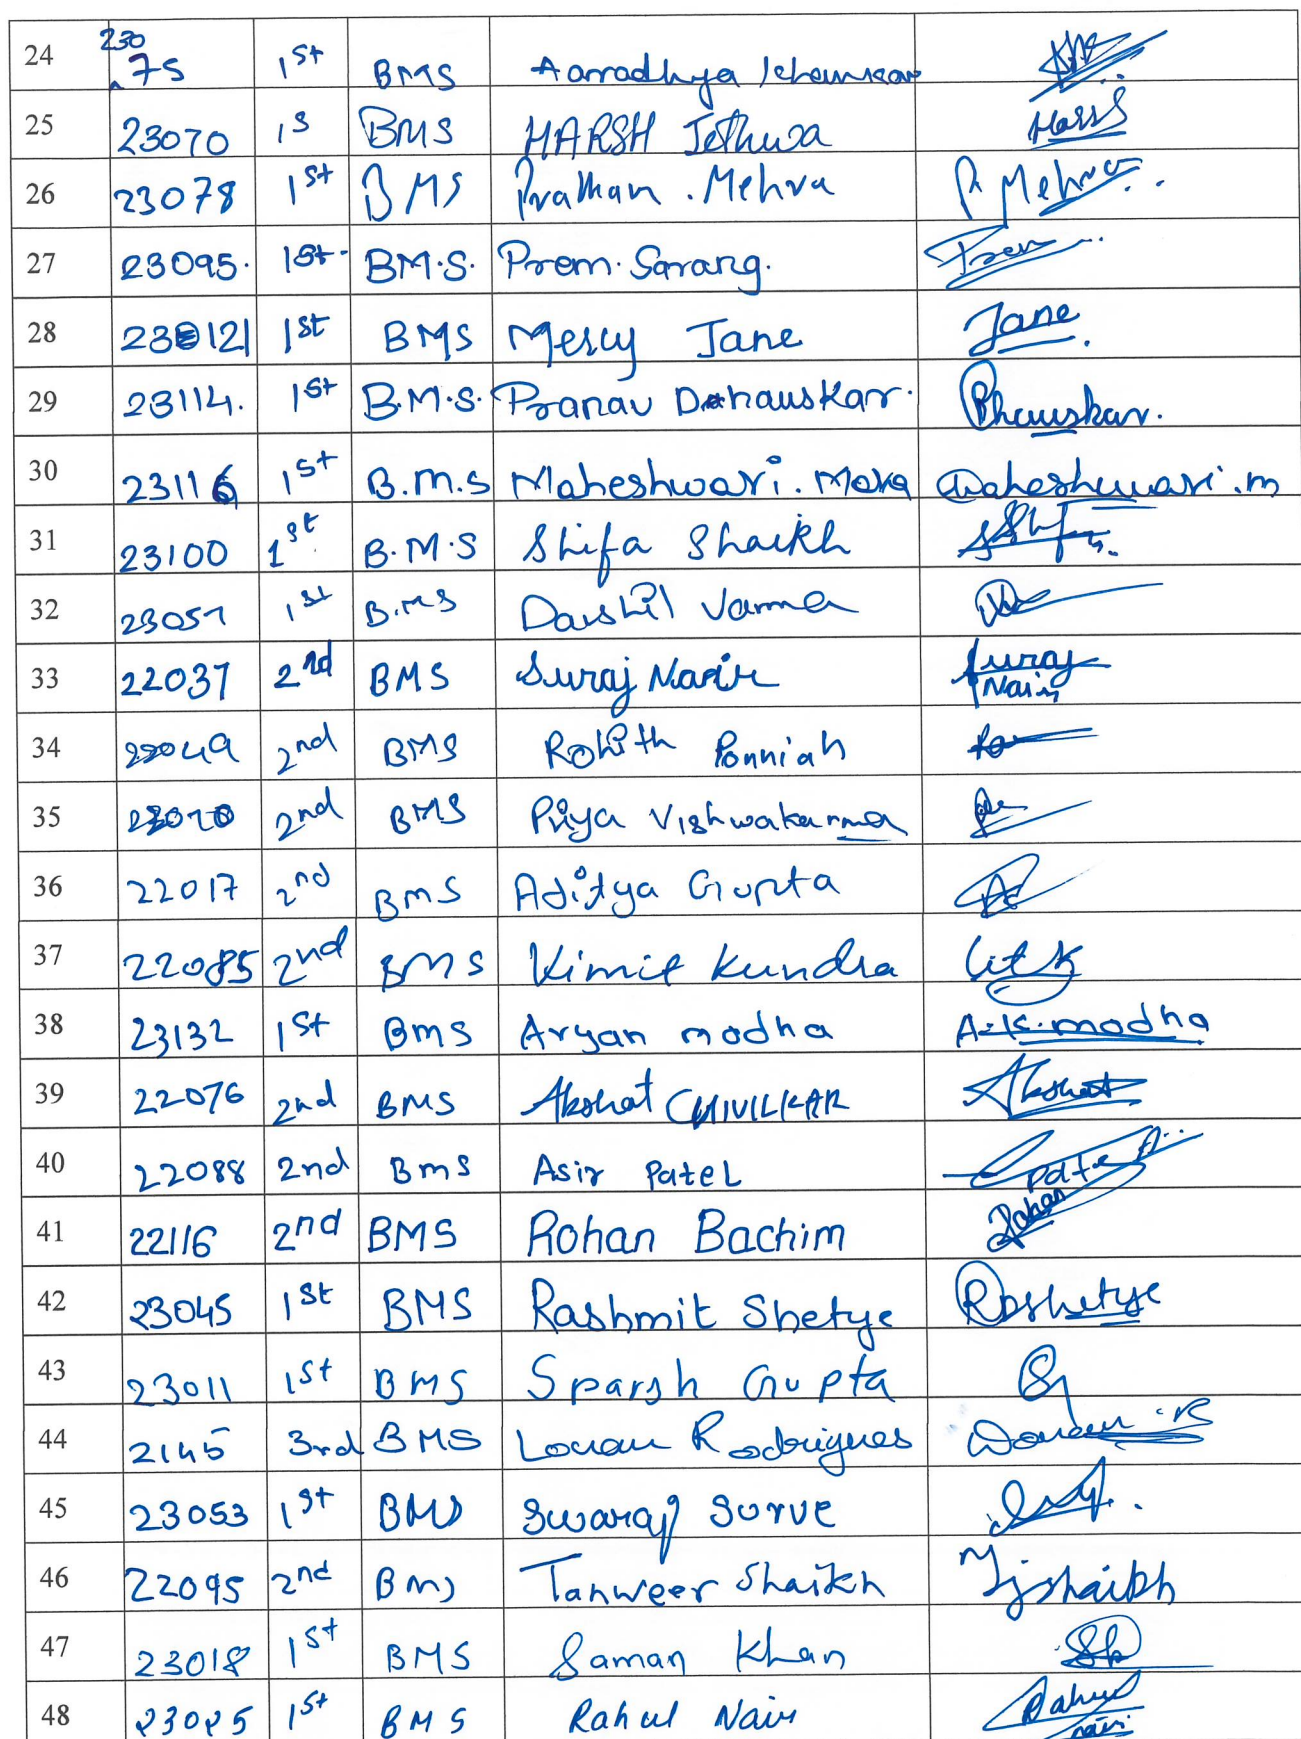 24 23075 1st BMS Aarradhya Khanvkar
25 23070 1s BMS HARSH Jethwa Harsh
26 23078 1st BMS Pratham . Mehra P. Mehra
27 23095. 1st. B.M.S. Prem. Sarang. Prem
28 230121 1st BMS Mercy Jane Jane.
29 23114. 1st B.M.S. Pranav Dahauskar.
30 23116 1st B.m.s Maheshwari. Mora Maheshwari.m
31 23100 1st B.M.S Shifa Shaikh
32 23051 1st B.MS Darshil Varma
33 22037 2nd BMS Suraj Nair Suraj
Nair
34 22049 2nd BMS Rohith Ponniah
35 2nd BMS Priya Vishwakarma
36 22017 2nd BMS Aditya Gupta
37 22085 2nd BMS Vimit Kundra
38 23132 1st BMS Aryan modha A.K.modha
39 22076 2nd BMS Akshat CHIVILKAR Akshat
40 22088 2nd BMS Asir Patel Patel A..
41 22116 2nd BMS Rohan Bachim Rohan
42 23045 1st BMS Rashmit Shetye RShetye
43 23011 1st BMS Sparsh Gupta
44 2145 3rd BMS Rodrigues
45 23053 1st BMS Swaraj Surve
46 22095 2nd BMS Tanweer Shaikh Tjshaikh
47 23018 1st BMS Saman Khan Sk
48 23025 1st BMS Rahul Nair Rahul
nair